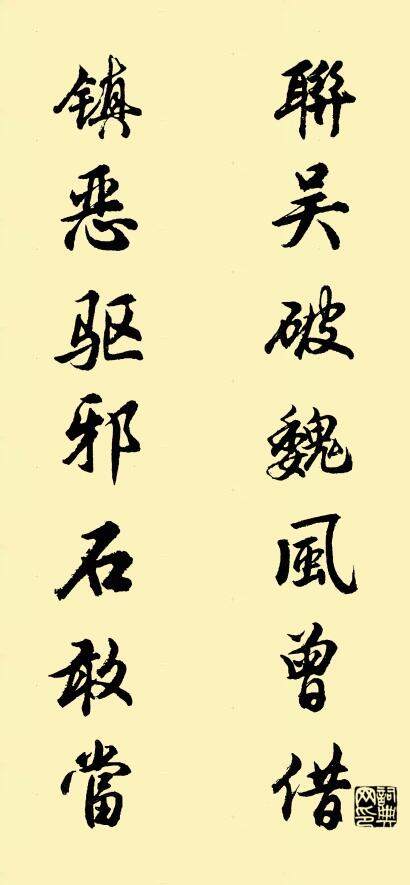 聯吴破魏風曾借
镇恶驱邪石敢當
詞典网印